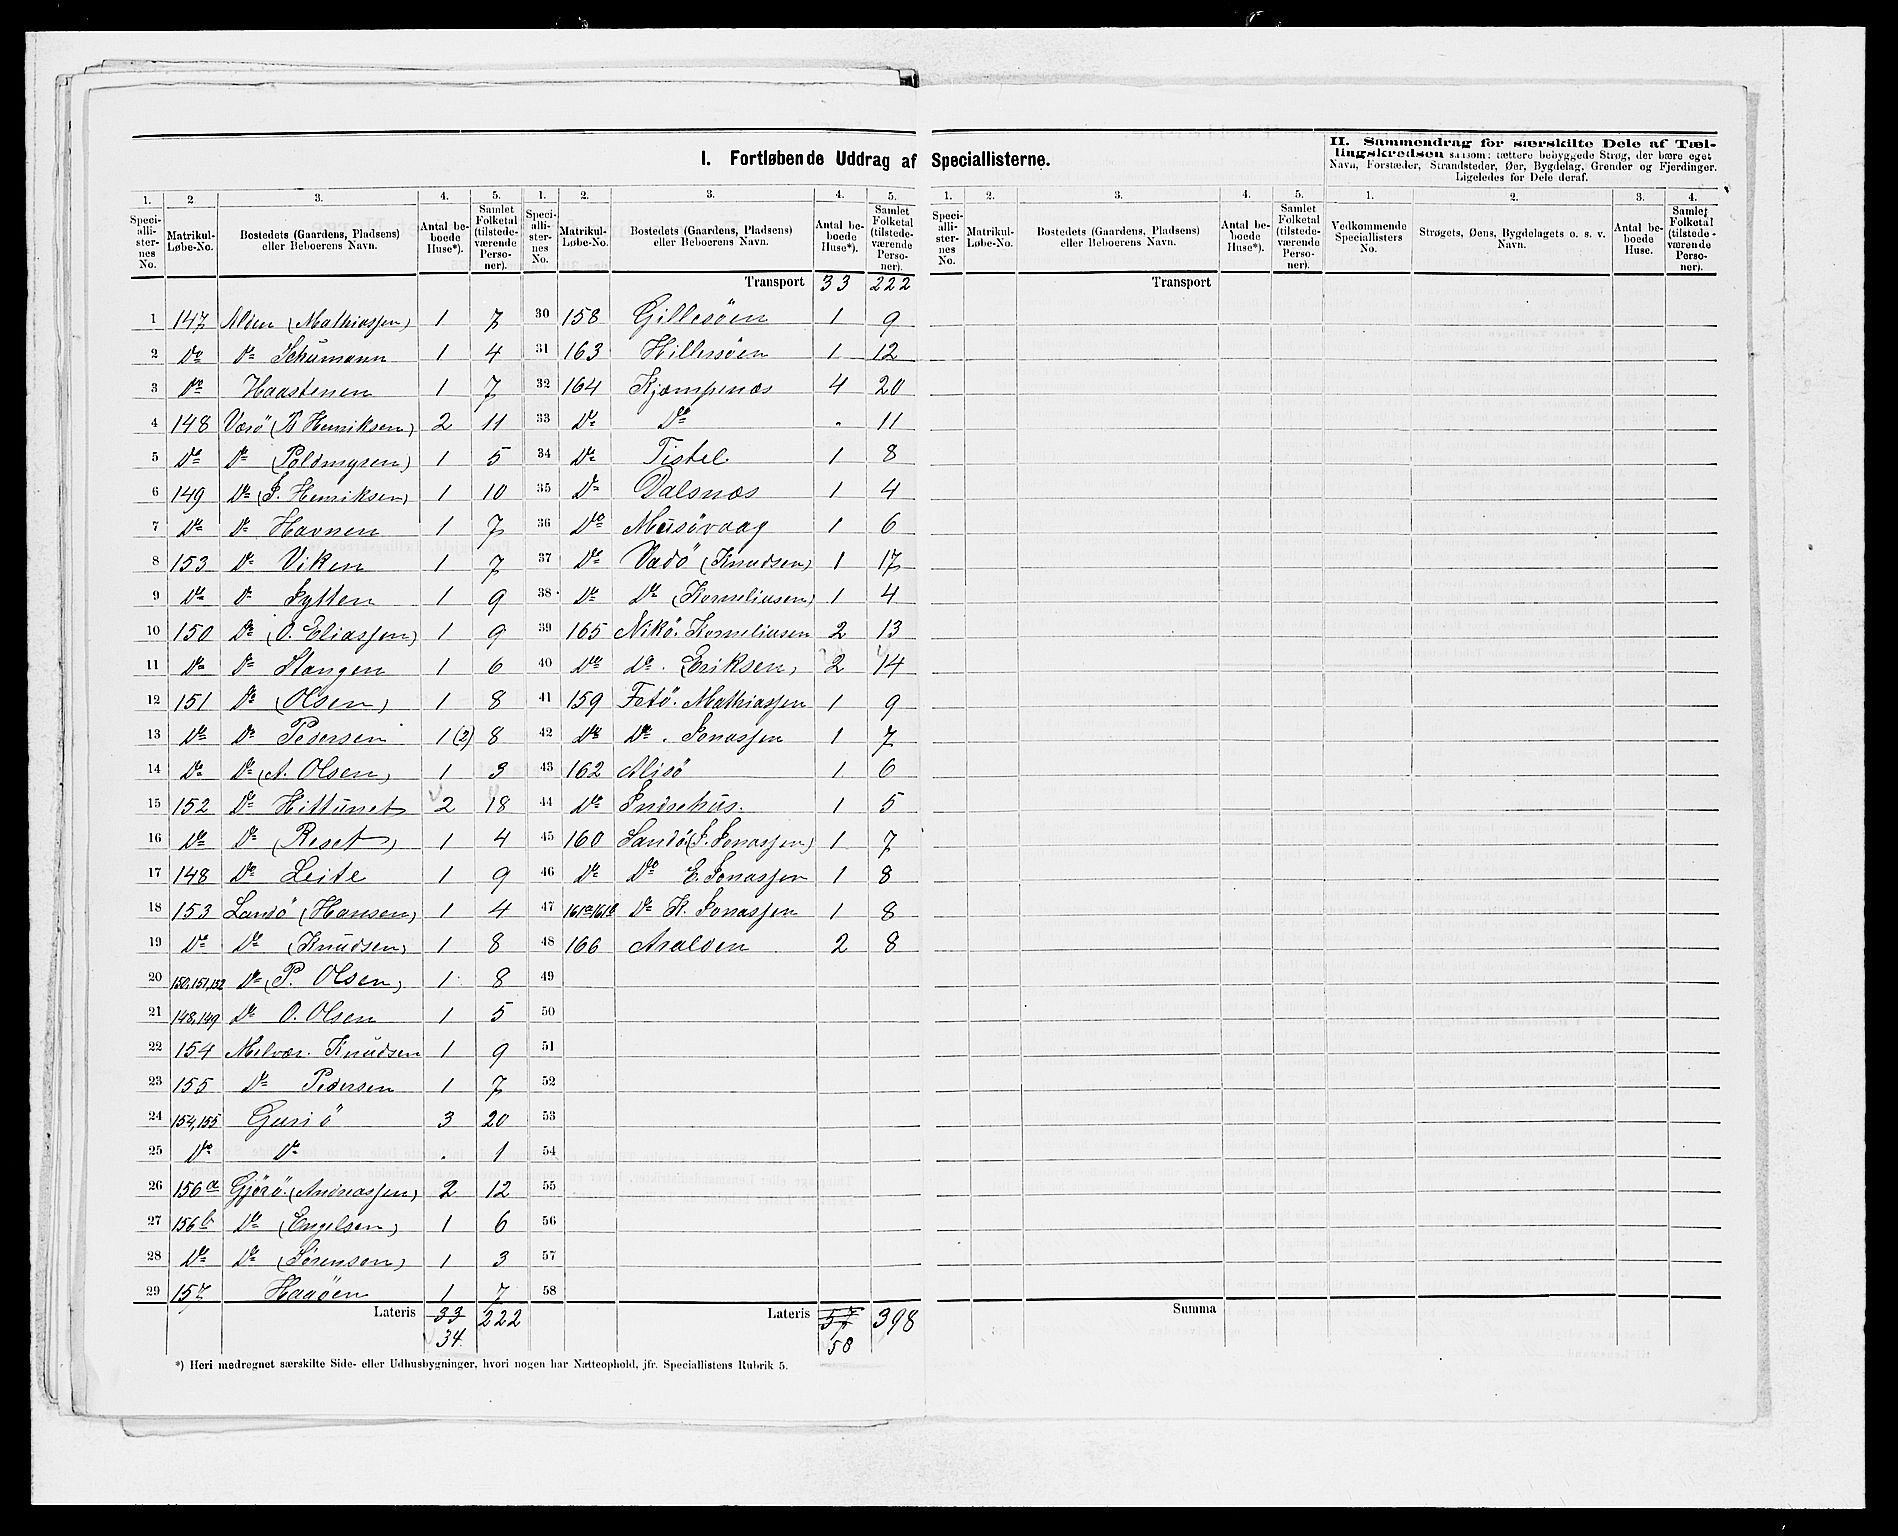 I. Fortløbende Uddrag af Speciallisterne.
II. Sammendrag for særskilte Dele af Tæl-
lingskredsen saasom: tættere bebyggede Strøg, der bære eget
Navn, Forstæder, Strandsteder, Øer, Bygdelag, Grender og Fjerdinger.
Ligeledes for Dele deraf.
1. 2 3. 4. 5. 1. 2. 3. 4. 5. 1. 2. 3. 4. 5. 1. 2. 3. 4.
Speci-alli-ster-nes No. Matrikul-Løbe-No. Bostedets (Gaardens, Pladsens) eller Beboerens Navn. Antal be-boede Huse*). Samlet Folketal (tilstede-værende Perso-ner).
Speci-alli-ster-nes No. Matrikul-Løbe-No. Bostedets (Gaardens, Pladsens) eller Beboerens Navn. Antal be-boede Huse*). Samlet Folketal (tilstede-værende Perso-ner).
Speci-alli-ster-nes No. Matrikul-Løbe-No. Bostedets (Gaardens, Pladsens) eller Beboerens Navn. Antal be-boede Huse*). Samlet Folketal (tilstede-værende Perso-ner).
Vedkommende Speciallisters No. Strøgets, Øens, Bygdelagets o. s. v. Navn. Antal be-boede Huse. Samlet Folketal (tilstede-værende Perso-ner).
Transport 33 222
Transport
1 147 (Mathiassen) 1 7
2 Do Do Schumann 1 4
3 Do Haastenen 1 7
4 148 Værö (B Henriksen) 2 11
5 Do Do (Poldmysen) 1 5
6 149 Do (J. Henriksen) 1 10
7 Do Do Havnen 1 7
8 153 Do Viken 1 7
9 Do Do Sytten 1 9
10 150 Do (O. Eliassen) 1 9
11 Do Do Stangen 1 6
12 151 Do (Olsen) 1 8
13 Do Do Pedersen 1 (2) 8
14 Do Do (A. Olsen) 1 3
15 152 Do Hittunet 2 18
16 Do Do (Reset) 1 4
17 148 Do Leite 1 9
18 153 Landö (Hansen) 1 4
19 Do Do (Knudsen) 1 8
20 150,151,152 Do (P. Olsen) 1 8
21 148,149 Do O. Olsen 1 5
22 154 Melvær. Knudsen 1 9
23 155 Do Pedersen 1 7
24 154,155 Gusiö 3 20
25 Do Do . 1
26 156a Gjörö. (Andreassen) 2 12
27 156b Do (Engelsen) 1 6
28 Do Do (Sörenson) 1 3
29 157 Haaöen 1 7
Lateris 33 222
34
30 158 Gillesöen 1 9
31 163 Hillersöen 1 12
32 164 Kjæmpenæs 4 20
33 Do Do . 11
34 Do Tistel 1 8
35 Do Dalsnæs 1 4
36 Do Musövaag 1 6
37 Do Vadö (Knudsen) 1 17
38 Do Do (Korneliusen) 1 4
39 165 Nikö. Korneliusen 2 13
40 Do Do. (Eriksen) 2 14
41 159 Fetö. Mathiassen 1 9
42 Do Do. Jonassen 1 7
43 162 Alisö 1 6
44 Do Indrehus. 1 5
45 160 Sandö. (J. Jonassen) 1 7
46 Do Do E. Jonassen 1 8
47 161a,161b Do K. Jonassen 1 8
48 166 Aralden 2 8
49
50
51
52
53
54
55
56
57
58
Lateris 57 398
58
Summa
*) Heri medregnet særskilte Side- eller Udhusbygninger, hvori nogen har Natteophold, jfr. Speciallistens Rubrik 5.